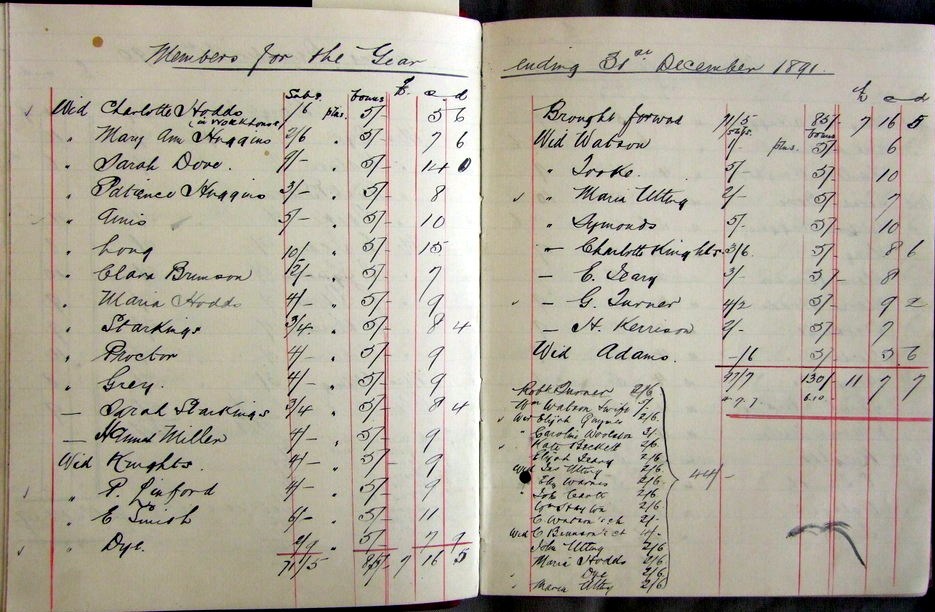 Members for the Year
Subs. bonus £ s d
Wid Charlotte Hodds /6 plus. 5/- 5 6
in Workhouse
" Mary Ann Huggins 2/6 " 5/- 7 6
" Sarah Dove. 9/- " 5/- 14 0
" Patience Huggins 3/- " 5/- 8
" Amis 5/- " 5/- 10
" Long 10/- " 5/- 15
" Clara Brunson 2/- " 5/- 7
" Maria Hodds 4/- " 5/- 9
" Starkings 3/4. " 5/- 8 4
" Proctor 4/- " 5/- 9
" Grey. 4/- " 5/- 9
— Sarah Starkings 3/4 " 5/- 8 4
— Hannah Miller 4/- " 5/- 9
Wid Knights. 4/- " 5/- 9
" P. Linford 4/- " 5/- 9
" E Tinish 6/- " 5/- 11
" Dye. 2/9 " 5/- 7 9
71/5 85/- 7 16 5
ending 31st December 1891.
£ s d
Brought forwod 71/5 85/- 7 16 5
subs. bonus
Wid Watson 1/- plus. 5/- 6
" Tooke. 5/- 5/- 10
" Maria Utting 2/- 5/- 7
" Symonds 5/- 5/- 10
— Charlotte Knights. 3/6. 5/- 8 6
— E. Leary 3/- 5/- 8
— G. Turner 4/2 5/- 9 2
— H. Kerrison 2/- 5/- 7
Wid Adams. -/6 5/- 5 6
97/7 130/- 11 7 7
6.10.
Robt Turner 2/6
Wm Watson Swife
Wid Elijah Gaynes 2/6
Caroline Woolston 3/
Kate Beckett 2/6
Elijah Leary 2/6
Wid Jas Utting 2/6
Elz Warnes 2/6 44/-
Job Carte 2/6
2/6
C Watson's ch 2/-
Wid C Brunson's ch 1/-
John Utting 2/6
Maria Hodds 2/6
Dye 2/6
Maria Utting 2/6